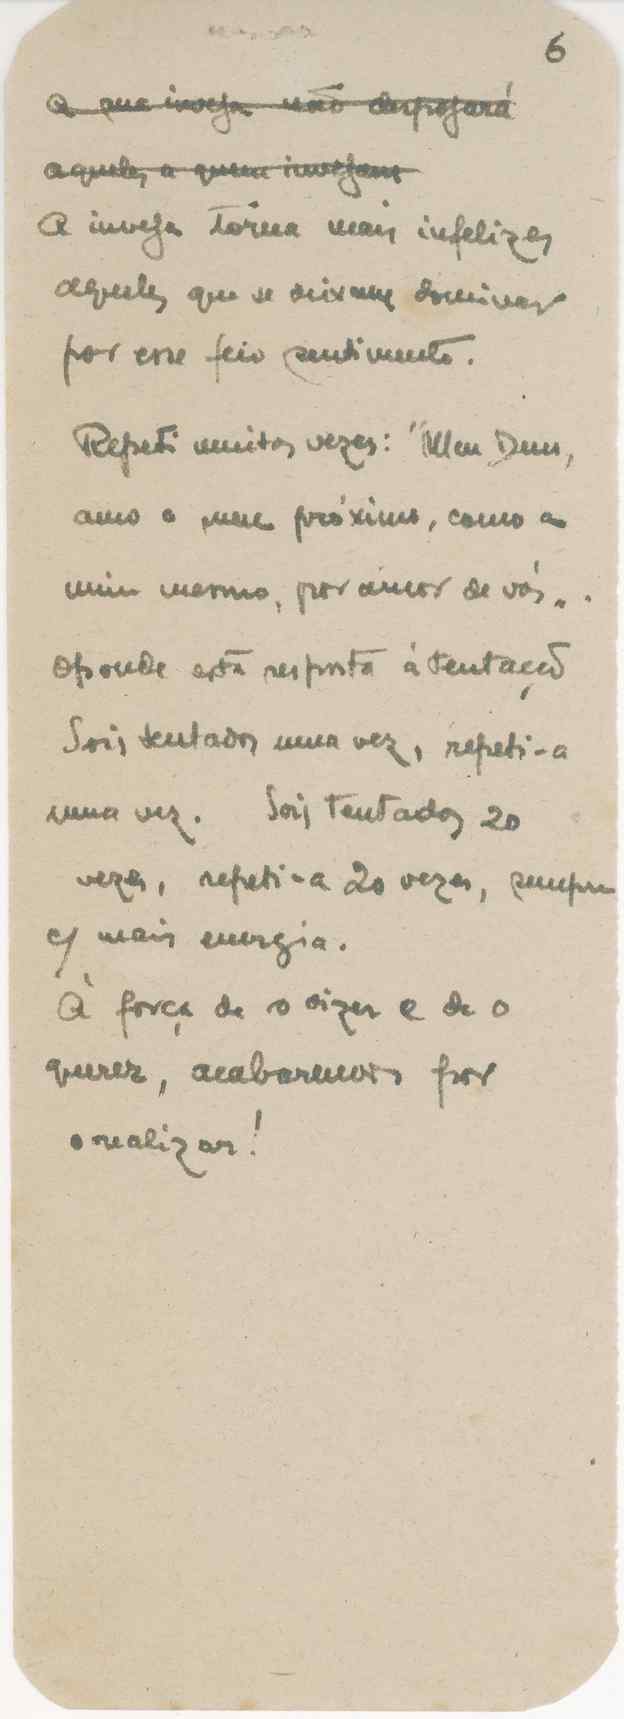 6
a que inveja não despojará
aqueles a quem invejam
A inveja torna mais infelizes
aqueles que se deixam dominar
por esse feio sentimento.
Repeti muitas vezes: "Meu Deus,
amo o meu próximo, como a
mim mesmo, por amor de vós".
Oponde esta resposta á tentação
Sois tentados uma vez, repeti-a
uma vez. Sois tentados 20
vezes, repeti-a 20 vezes, sempre
c/ mais energia.
À força de o dizer e de o
querer, acabaremos por
o realizar!